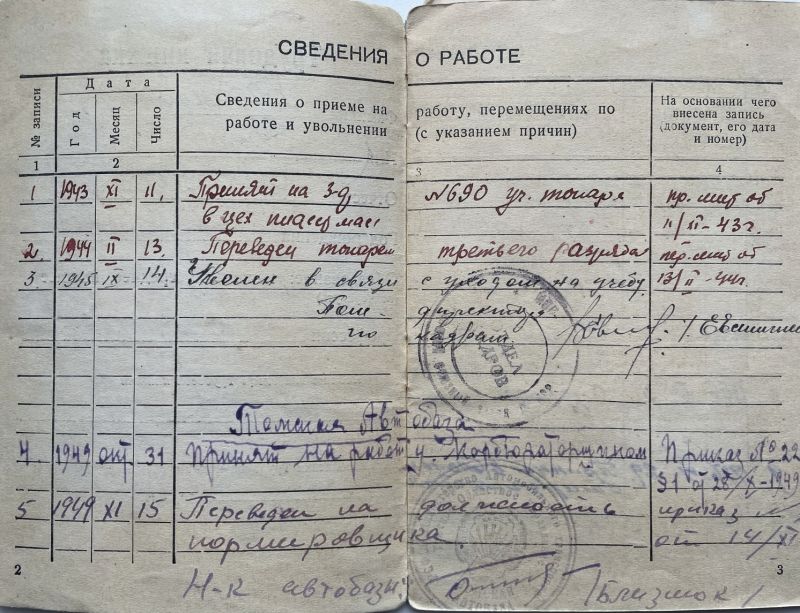 СВЕДЕНИЯ О РАБОТЕ
№ записи
Дата
Год
Месяц
Число
Сведения о приеме на работу, перемещениях по
работе и увольнении (с указанием причин)
На основании чего
внесена запись
(документ, его дата
и номер)
1 2 3 4
1 1943 XI 11. Принят на з-д №690 уч. токаря
в цех пластмасс
11/XI-43г.
2. 1944 II 13. Переведен токарем третьего разряда
13/II-44г.
3 1945 IX 14. Уволен в связи с уходом на учебу
Пом- директора
го кадрам
ОТДЕЛ КАДРОВ
Томская Автобаза
4. 1949 окт. 31 Принят на работу Карбюраторщиком Приказ № 22
§1 от 28/X-1949
5 1949 XI 15 Переведен на должность приказ №
нормировщика от 14/XI
Н-к автобазы:
2 3